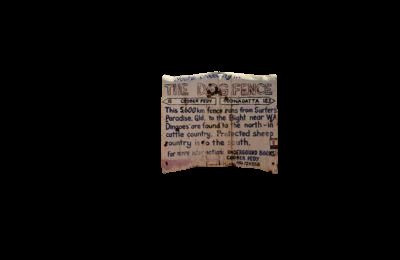 THE DOG FENCE
COOBER PEDY OODNADATTA
This 5,600km fence runs from Surfers
Paradise, Qld. to the Bight near W.A.
Dingoes are found to the north - in
cattle country. Protected sheep
country is to the south.
For more information: UNDERGROUND BOOKS
COOBER PEDY